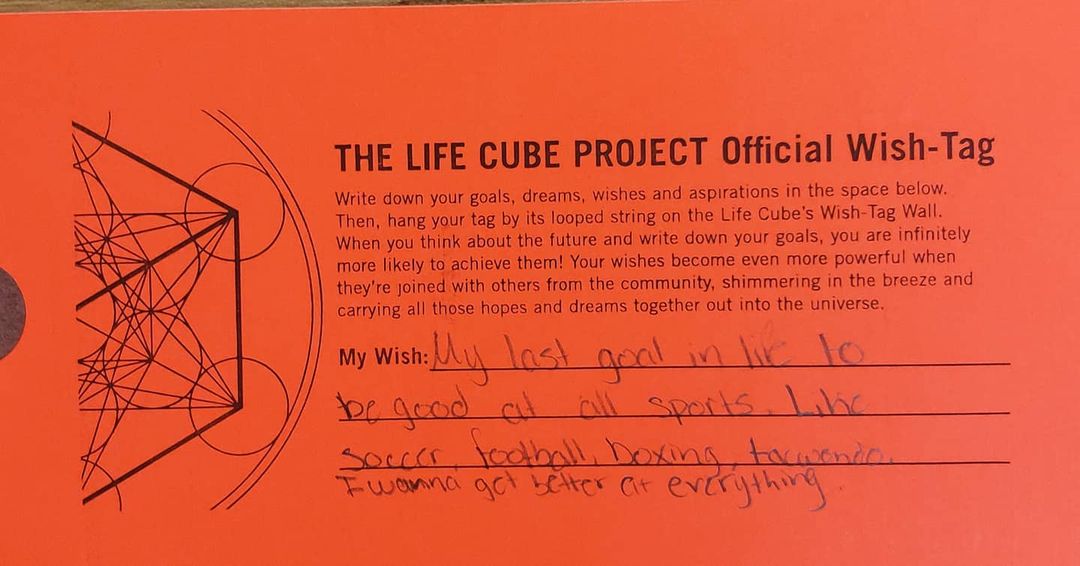 THE LIFE CUBE PROJECT Official Wish-Tag
Write down your goals, dreams, wishes and aspirations in the space below.
Then, hang your tag by its looped string on the Life Cube's Wish-Tag Wall.
When you think about the future and write down your goals, you are infinitely
more likely to achieve them! Your wishes become even more powerful when
they're joined with others from the community, shimmering in the breeze and
carrying all those hopes and dreams together out into the universe.
My Wish: My last goal in life to
be good at all sports. Like
soccer, football, boxing,
I wanna get better at everything.